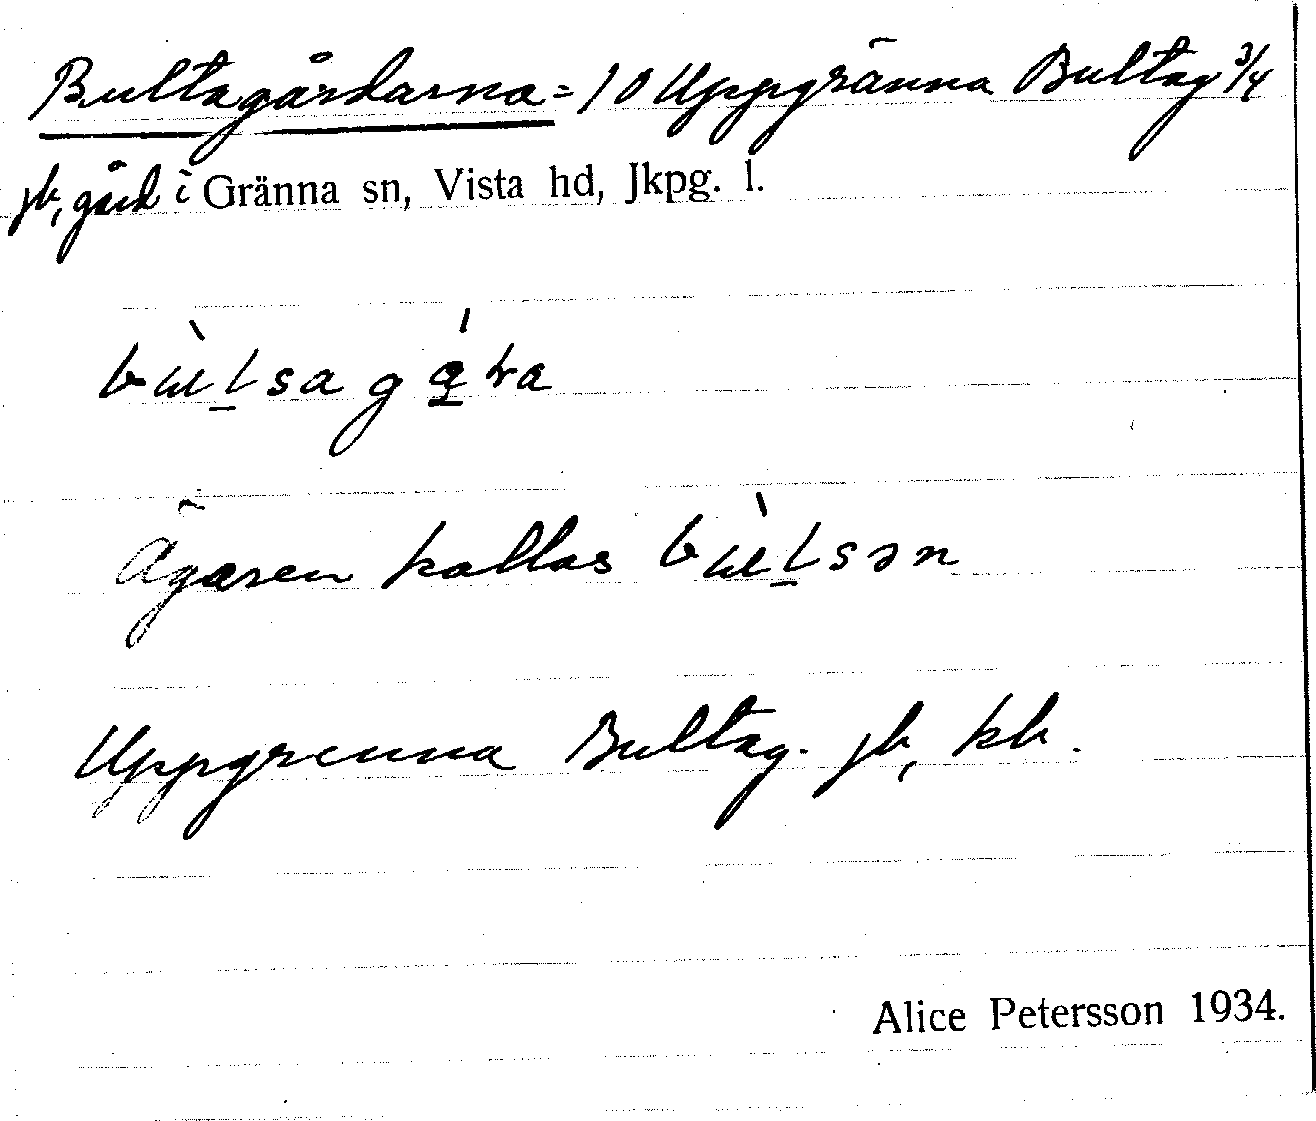 Bultsagårdarna = 10 Uppgränna Bultsg 3/4
jb, gård i Gränna sn, Vista hd, Jkpg. l.
bu̇̀l̲sagǻ̲ra
Ägaren kallas bùl̲sən
Uppgrenna Bultsg. jb, kb.
Alice Petersson 1934.